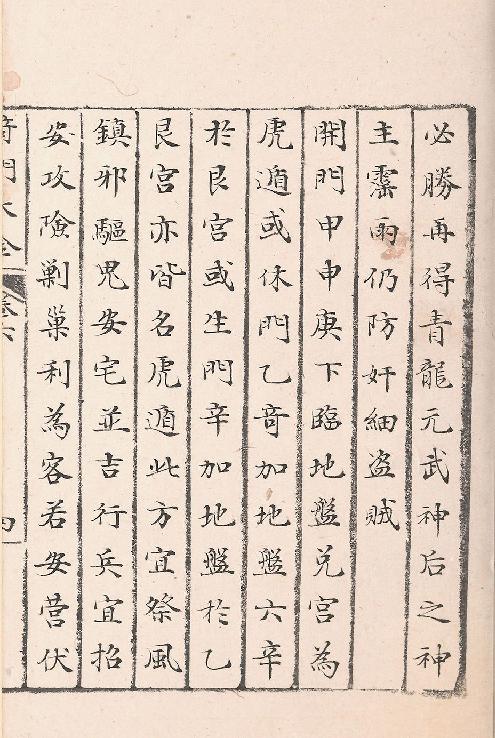 必勝再得青龍元武神后之神
主霪雨仍防奸細盗賊
開門甲申庚下臨地盤兌宮為
虎遁或休門乙竒加地盤六辛
於艮宮或生門辛加地盤於乙
艮宮亦皆名虎遁此方宜祭風
鎮邪驅鬼安宅並吉行兵宜招
安攻險剿巢利為客若安营伏
竒門大全 卷六